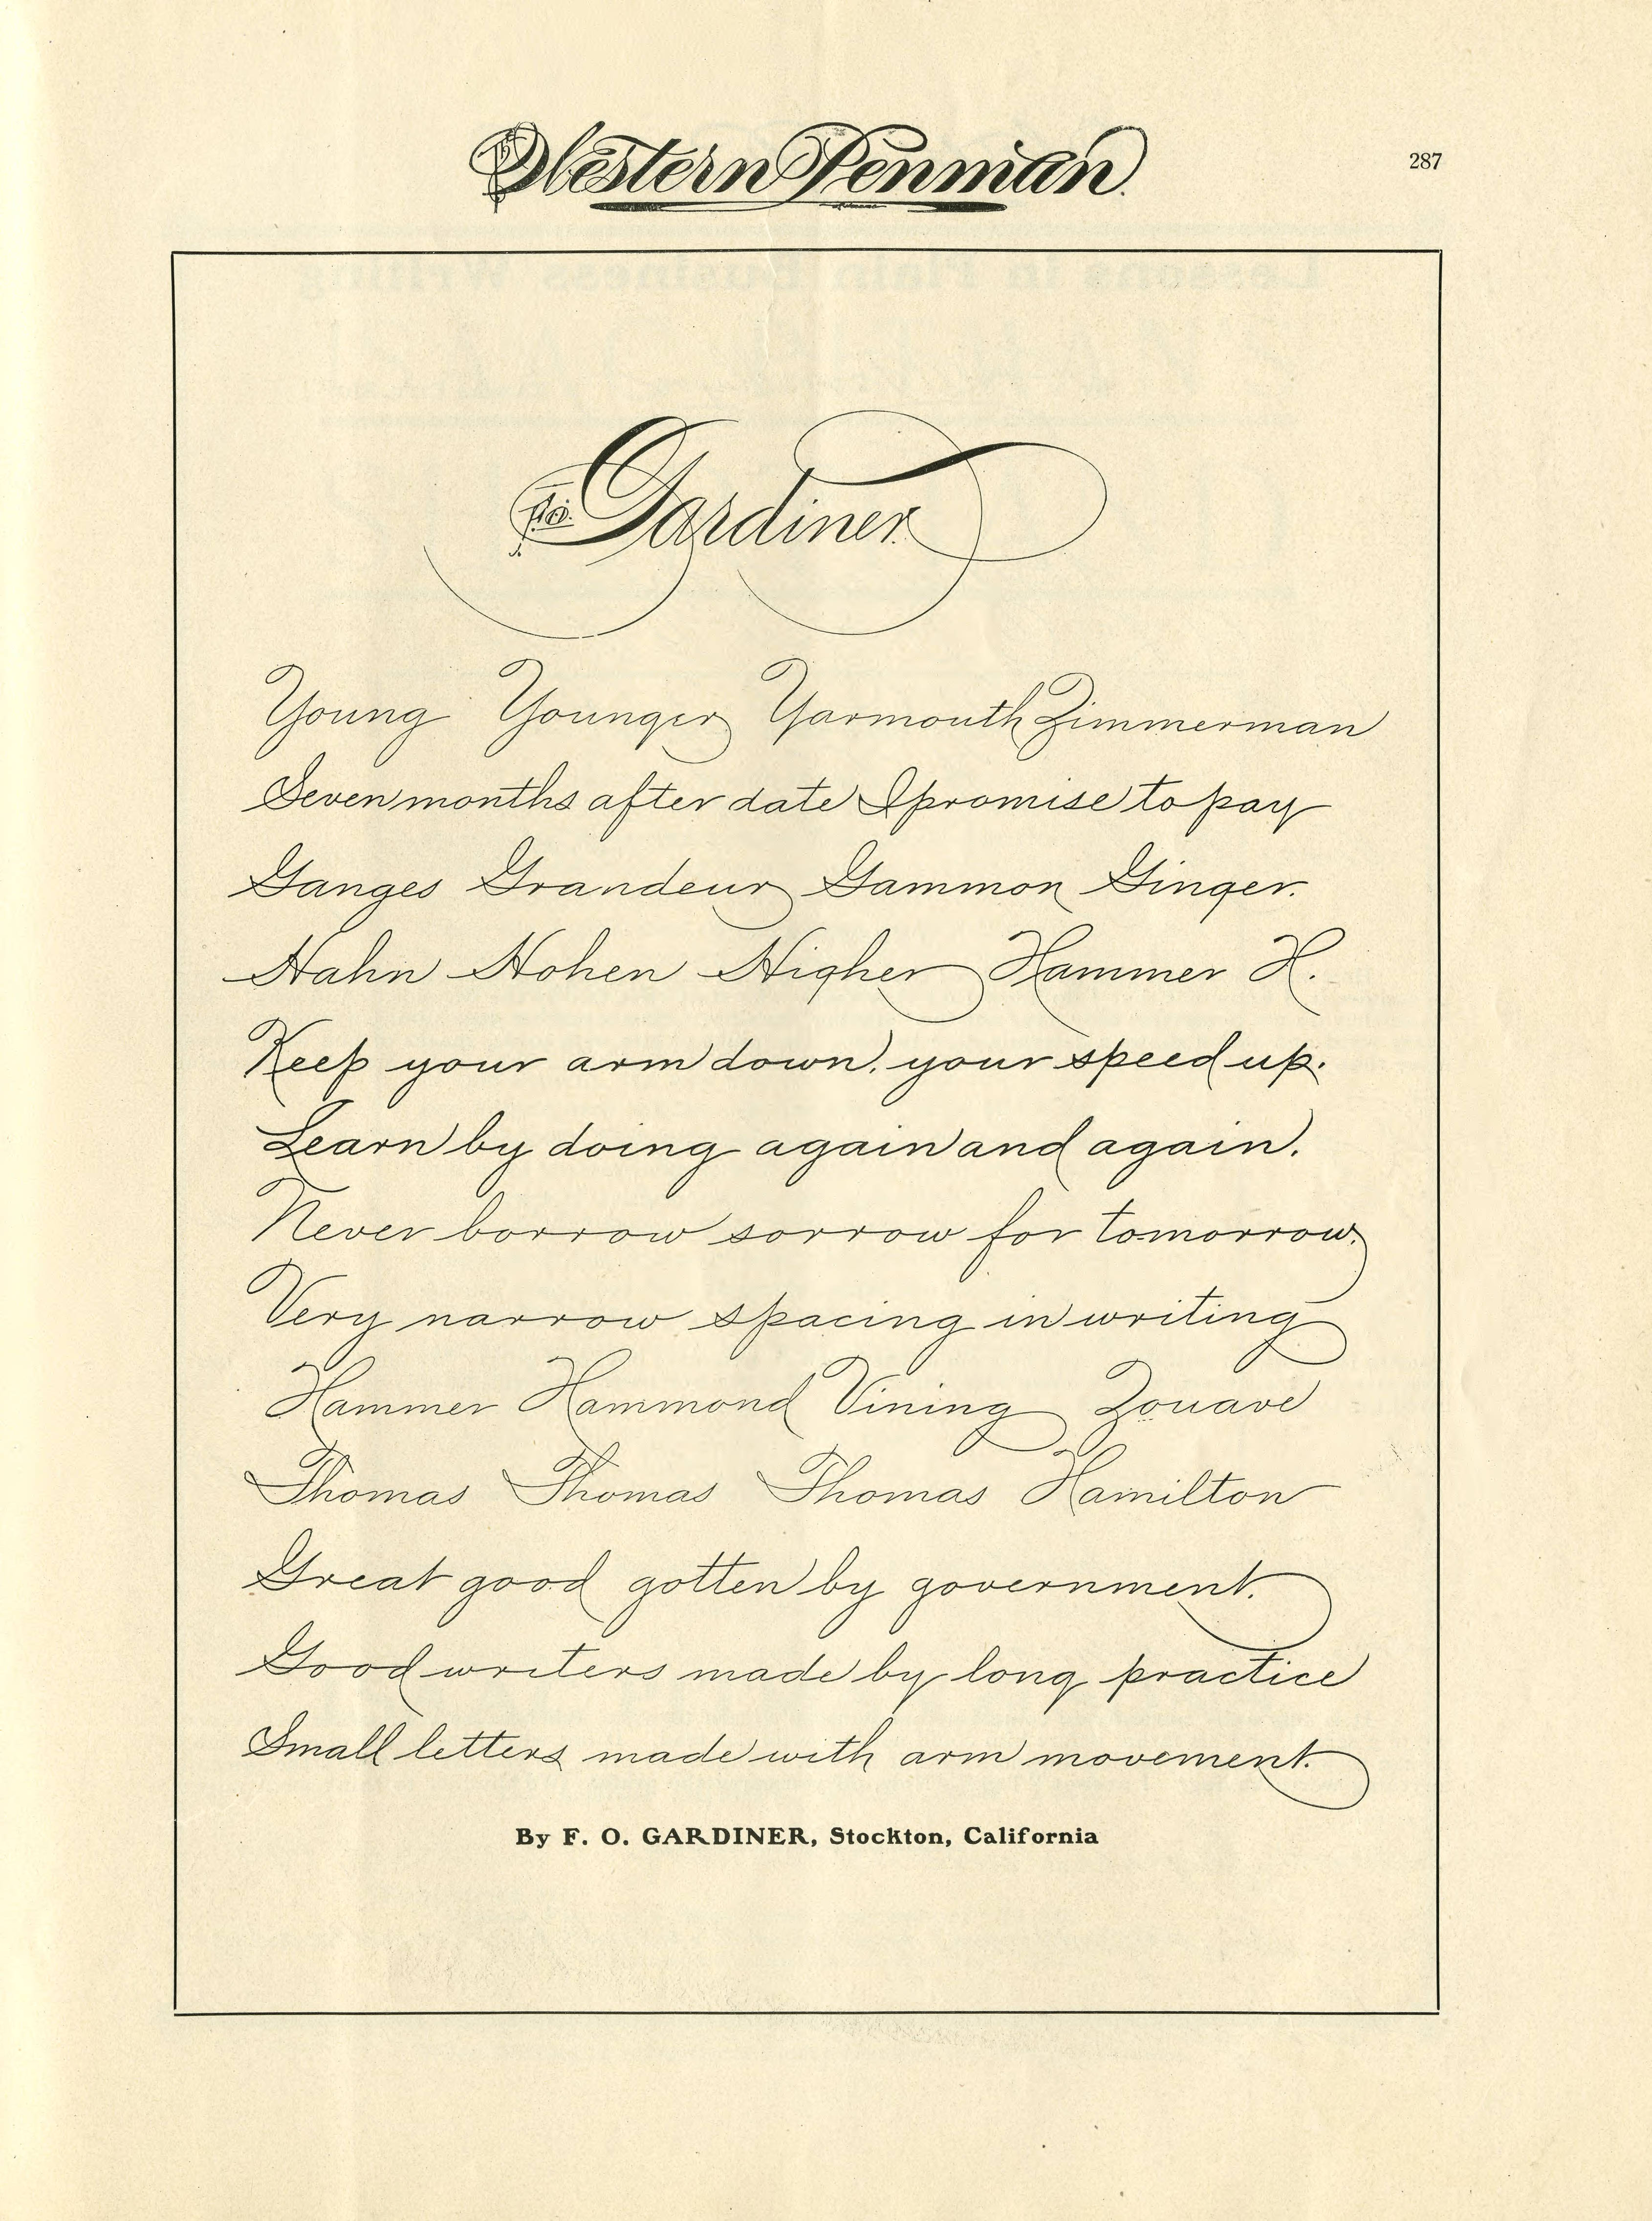 Western Penman.
287
F.O. Gardiner.
Young Younger Yarmouth Zimmerman
Seven months after date I promise to pay
Ganges Grandeur Gammon Ginger.
Hahn Hohen Higher Hammer H.
Keep your arm down, your speed up.
Learn by doing again and again.
Never borrow sorrow for tomorrow.
Very narrow spacing in writing
Hammer Hammond Vining Zouave
Thomas Thomas Thomas Hamilton
Great good gotten by government.
Good writers made by long practice
Small letters made with arm movement.
By F. O. GARDINER, Stockton, California